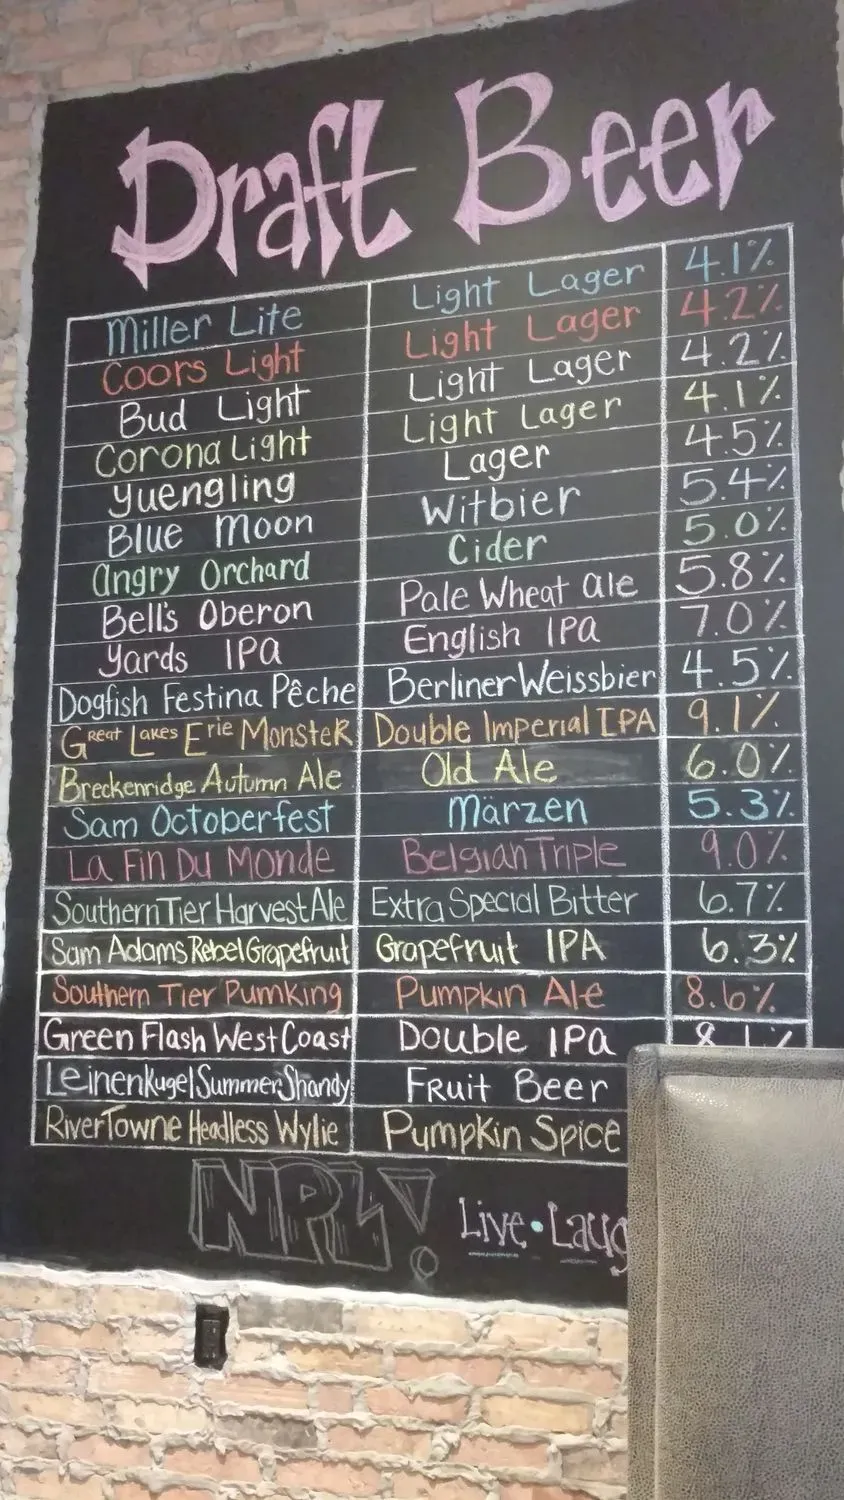 Draft Beer
Miller Lite Light Lager 4.1%
Coors Light Light Lager 4.2%
Bud Light Light Lager 4.2%
Corona Light Light Lager 4.1%
Yuengling Lager 4.5%
Blue Moon Witbier 5.4%
Angry Orchard Cider 5.0%
Bell's Oberon Pale Wheat Ale 5.8%
Yards IPA English IPA 7.0%
Dogfish Festina Pêche Berliner Weissbier 4.5%
Great Lakes Erie Monster Double Imperial IPA 9.1%
Breckenridge Autumn Ale Old Ale 6.0%
Sam Octoberfest Märzen 5.3%
La Fin Du Monde Belgian Triple 9.0%
Southern Tier Harvest Ale Extra Special Bitter 6.7%
Sam Adams Rebel Grapefruit Grapefruit IPA 6.3%
Southern Tier Pumking Pumpkin Ale 8.6%
Green Flash West Coast Double IPA
Leinenkugel Summer Shandy Fruit Beer
RiverTowne Headless Wylie Pumpkin Spice
NPL!
Live • Laug